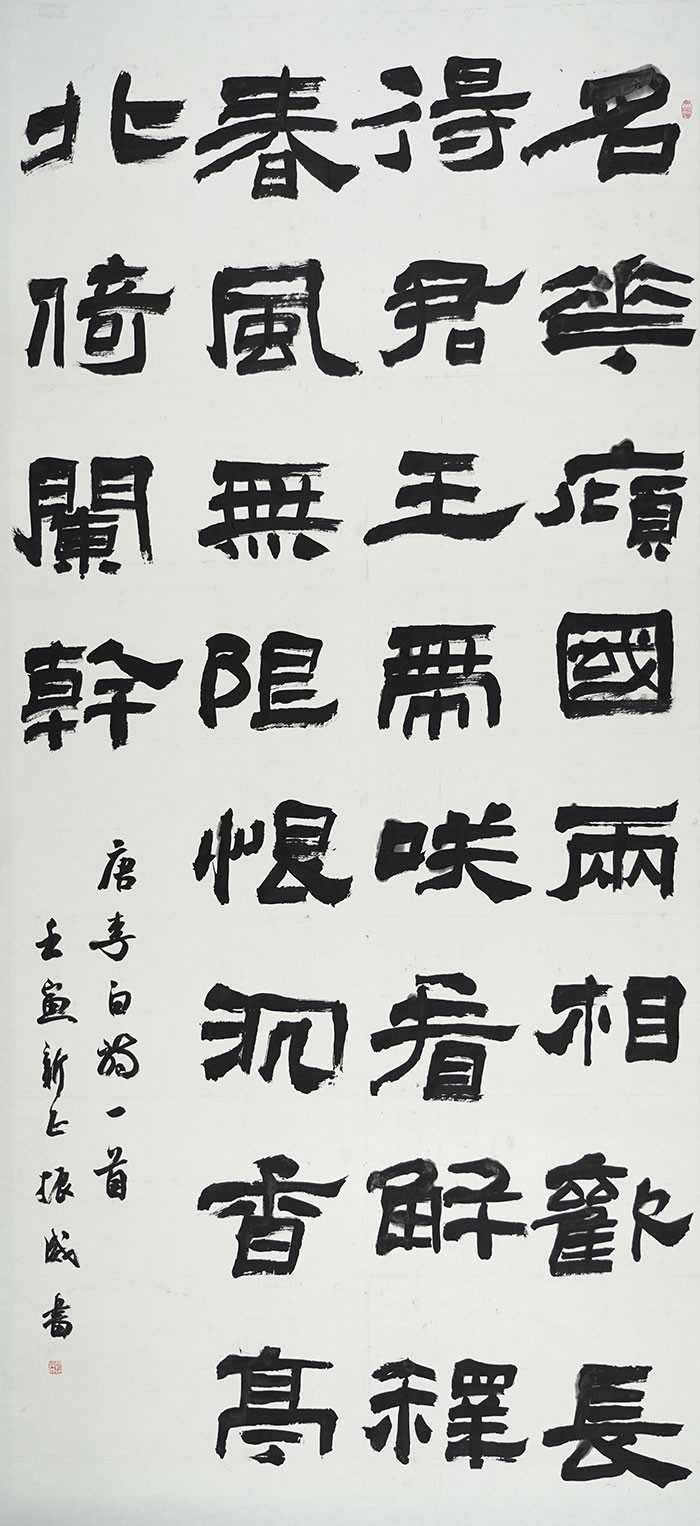 名花傾國兩相歡長
得君王帶咲看解釋
春風無限恨沉香亭
北倚闌幹
唐李白詩一首
壬寅新正振威書